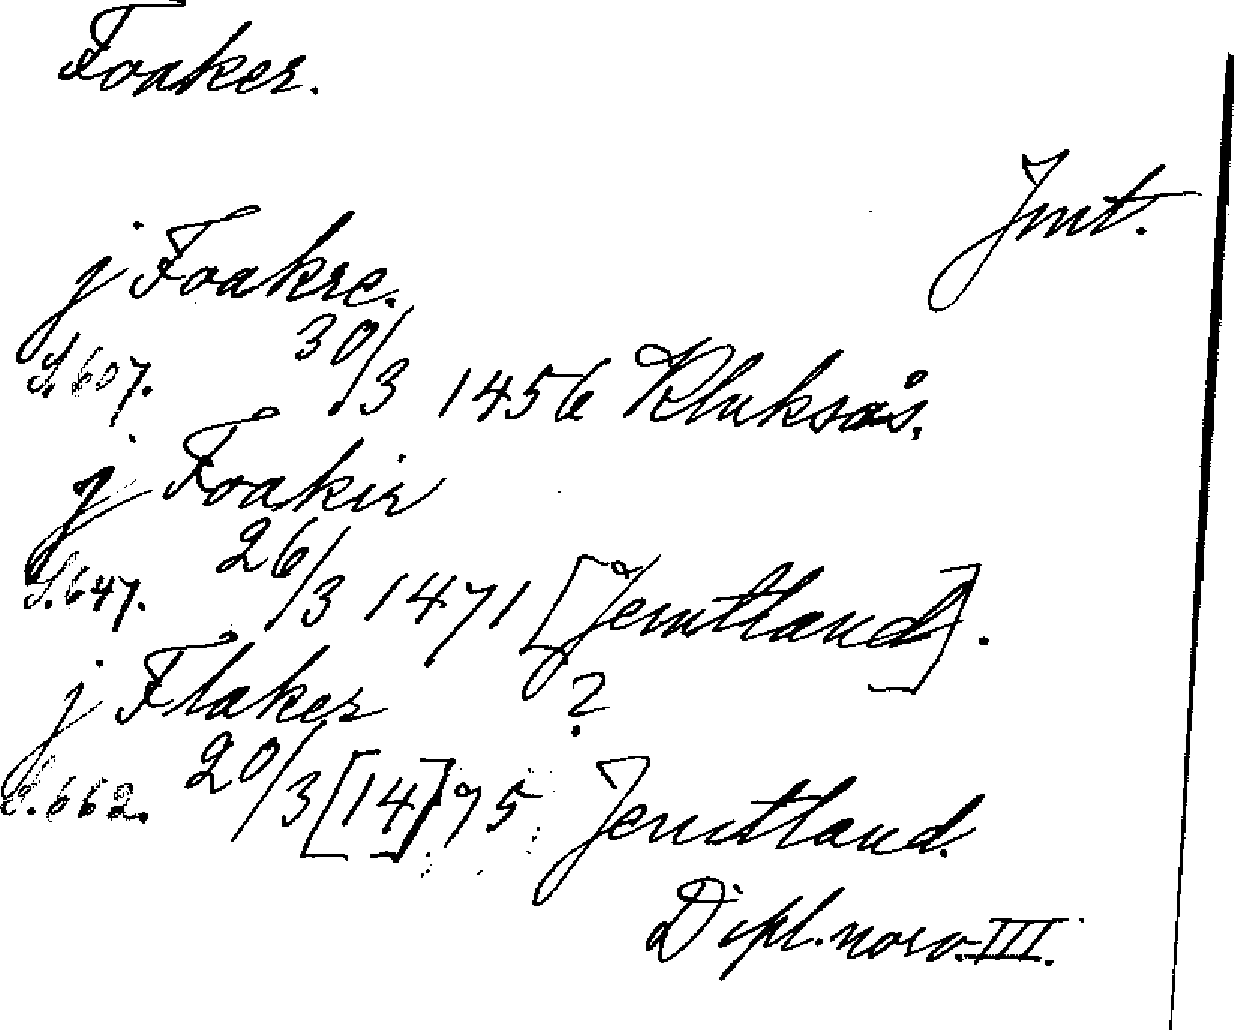 Foaker.
Jmt.
j Foakre.
S. 607. 30/3 1456 Kluksås.
j Foakir
S. 647. 26/3 1471 [Jemtland].
j Flaker ?
S. 662. 20/3 [14]75 Jemtland.
Dipl. norv. III.